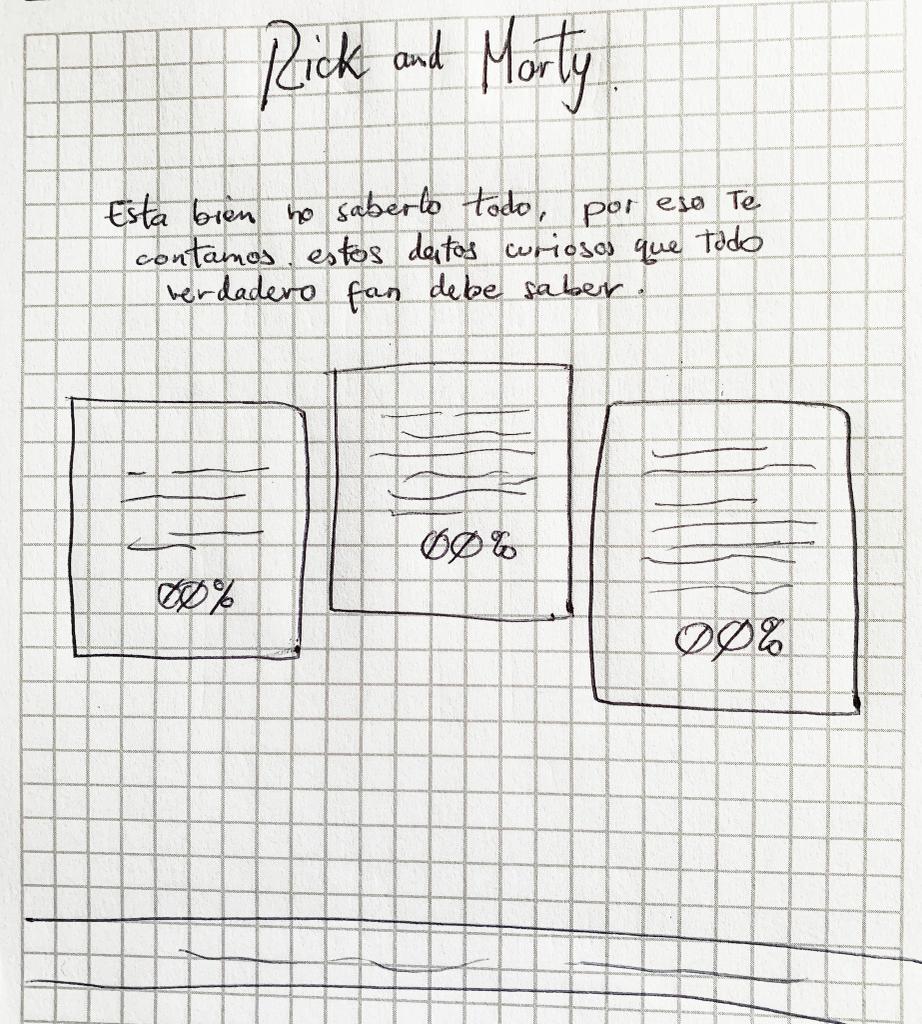 Rick and Morty.
Esta bien no saberlo todo, por eso Te
contamos estos datos curiosos que Todo
verdadero fan debe saber.
00%
00%
00%